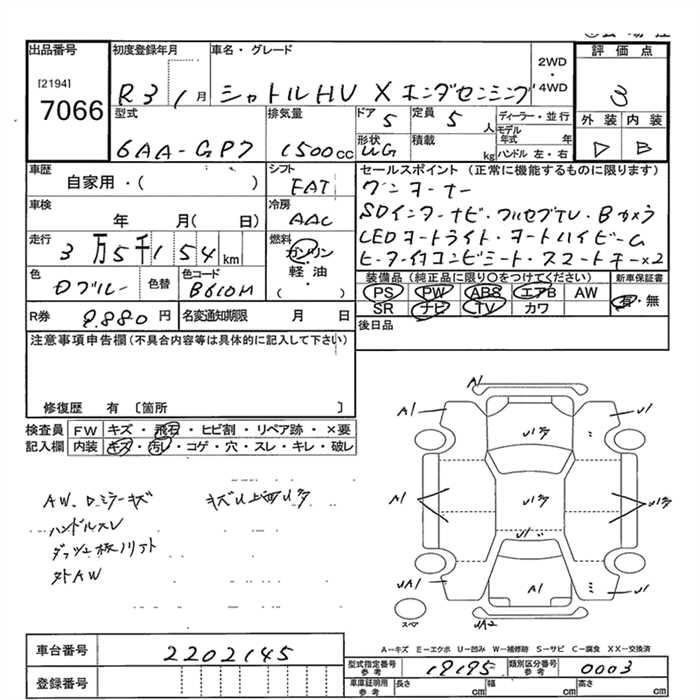 出品番号
[2194]
7066
初度登録年月
R3 1月
車名・グレード
シャトルHV X ホンダセンシング
2WD
・
4WD
評価点
3
外装 内装
D B
型式
6AA-GP7
排気量
1500cc
ドア
5
定員
5人
形状
UG
積載
kg
ディーラー・並行
モデル年式 年
ハンドル 左・右
車歴
自家用・( )
シフト
FAT
車検
年 月( 日)
冷房
AAC
走行
3万5千154km
燃料
ガソリン
軽油
・
( )
色
Dブルー
色替
色コード
B610M
R券
9.880円
名変通知期限 月 日
セールスポイント(正常に機能するものに限ります)
ワンオーナー
SDインターナビ・フルセグTV・Bカメラ
LEDオートライト・オートハイビーム
ヒーター付コンビシート・スマートキー×2
装備品(純正品に限り○をつけてください)
PS PW ABS エアB AW
SR ナビ TV カワ
新車保証書
有・無
後日品
注意事項申告欄(不具合内容等は具体的に記入して下さい)
修復歴 有〔箇所 〕
検査員記入欄
FW キズ・飛石・ヒビ割・リペア跡・×要
内装 キズ・汚レ・コゲ・穴・スレ・キレ・破レ
AW、ロミラーキズ
キズU上西Uタ
ハンドルスレ
外AW
A1
A1
A1
U1
U1
U1
A1
UA1
UA2
スペア
A-キズ E-エクボ U-凹み W-補修跡 S-サビ C-腐食 XX-交換済
車台番号
2202145
登録番号
型式指定番号 参考
19195
類別区分番号 参考
0003
車庫証明用 参考
長さ cm 幅 cm 高さ cm